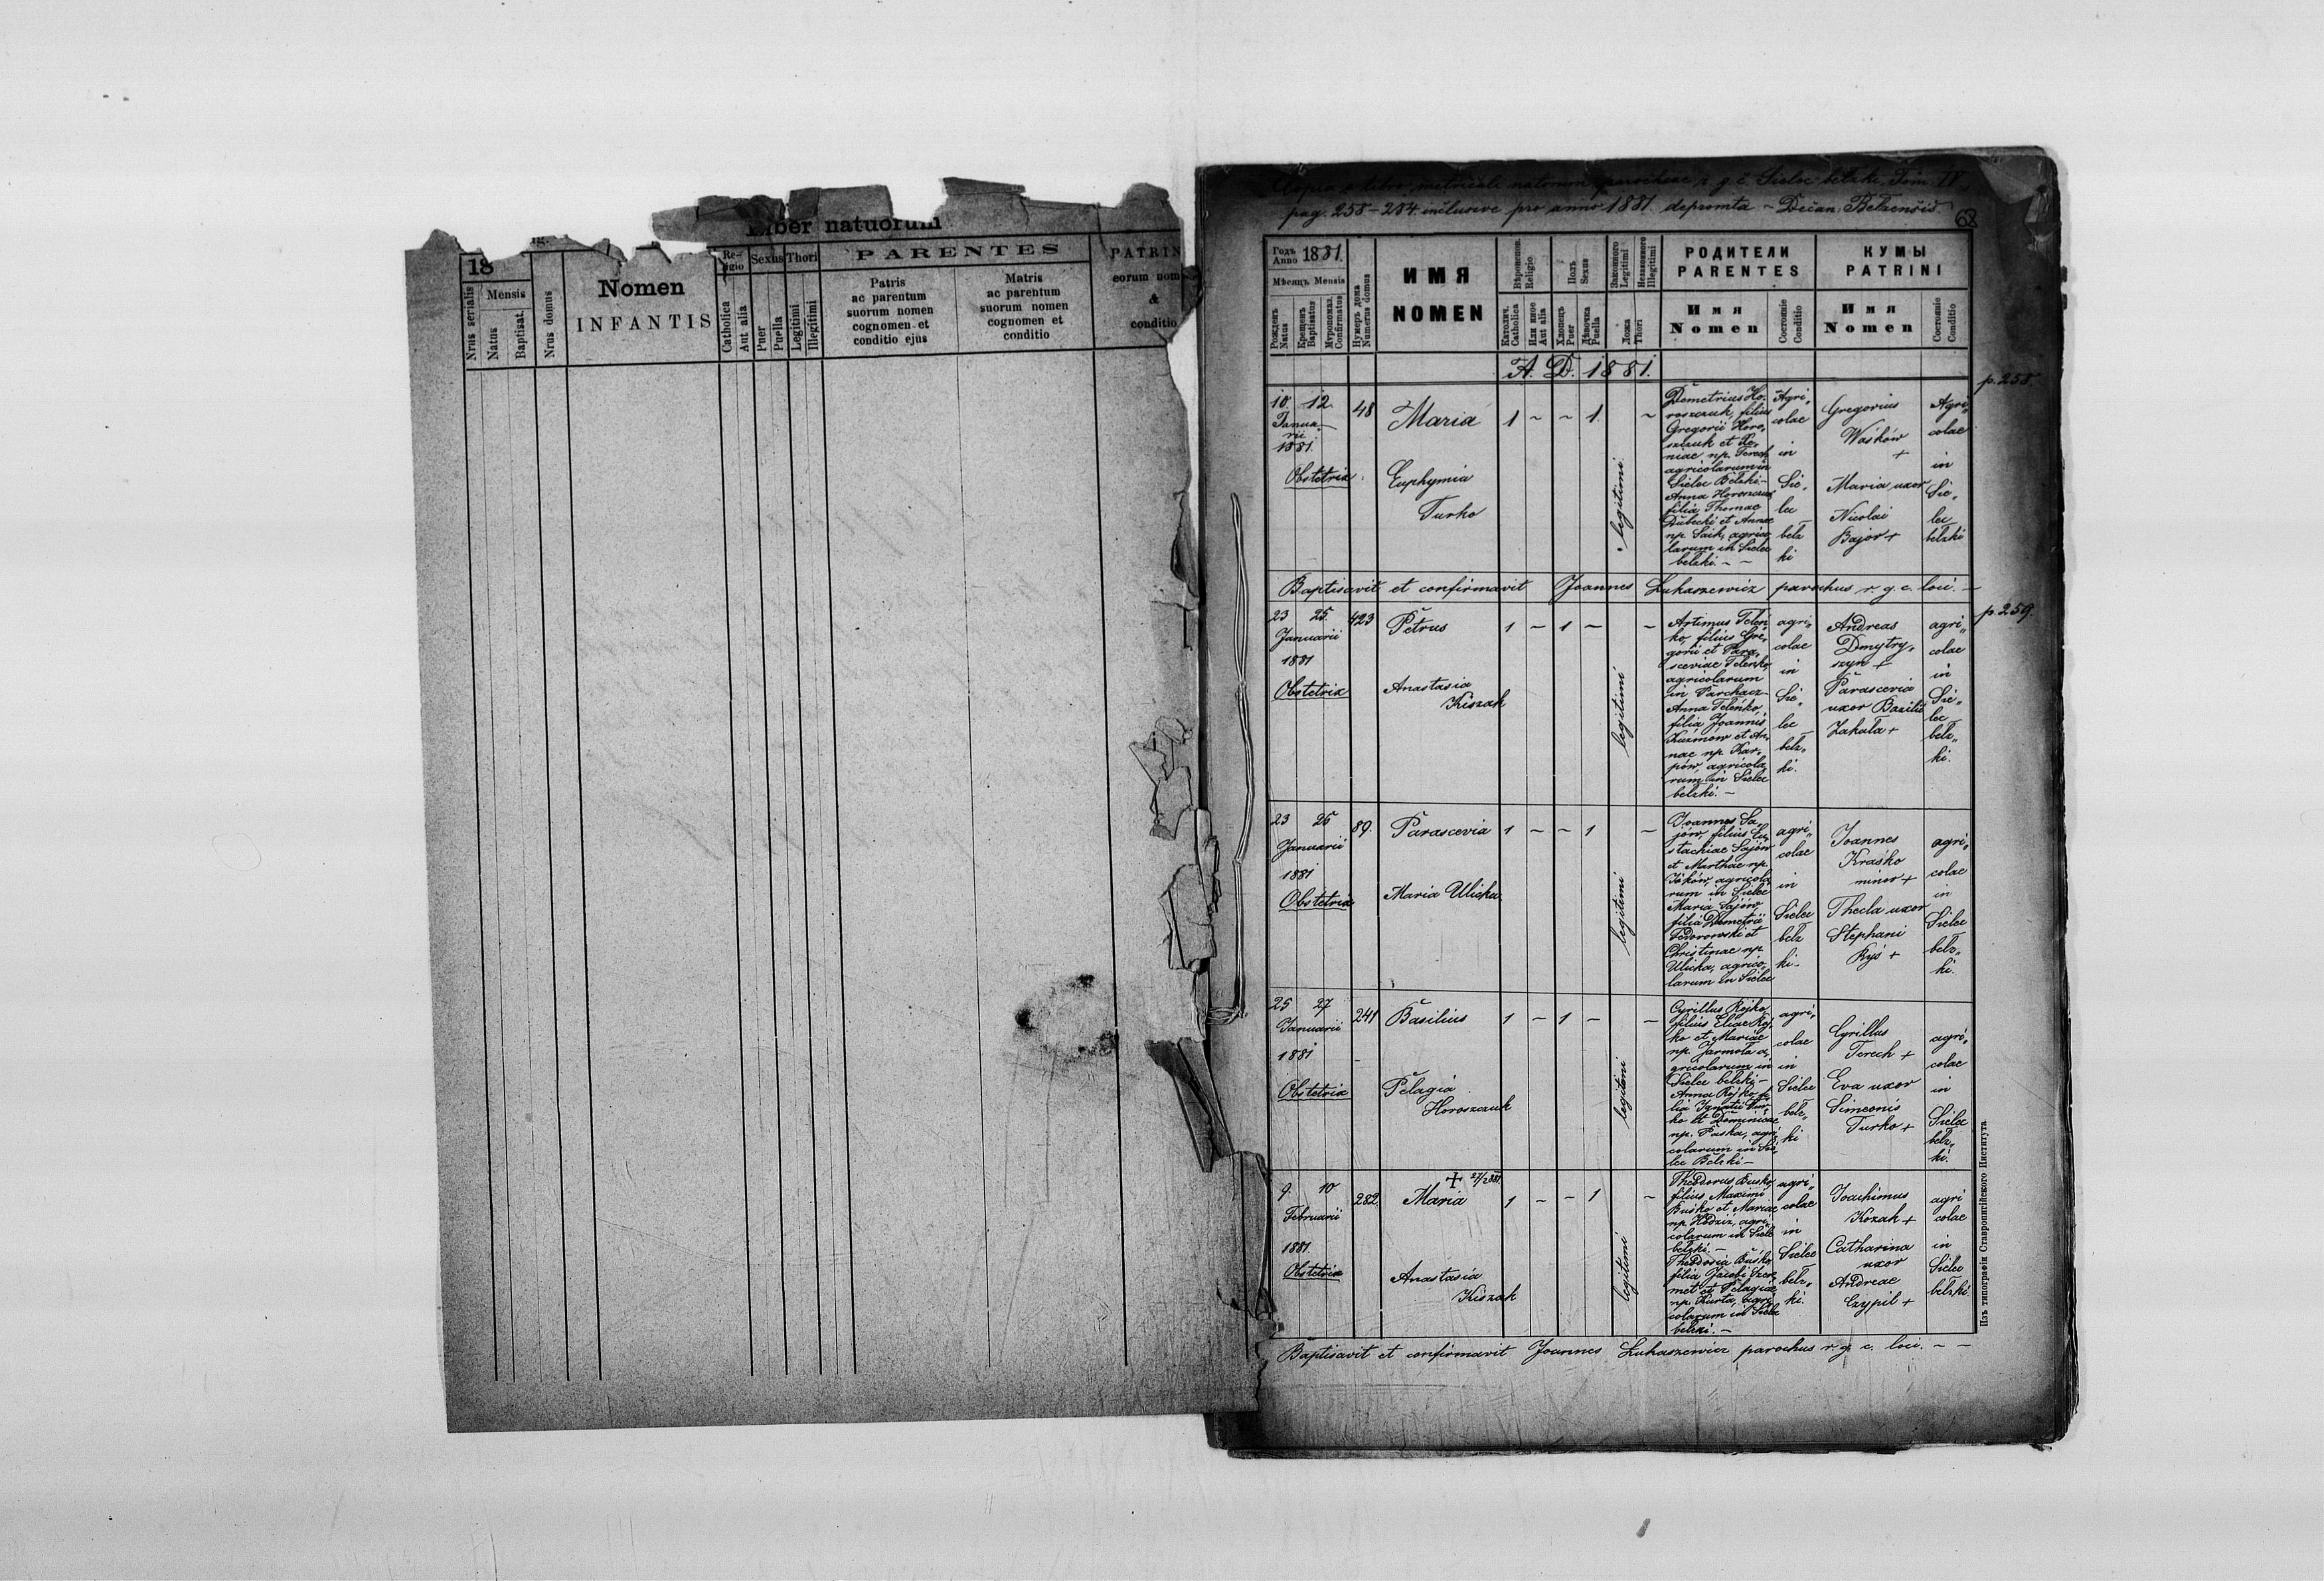 Liber natuorum
18
Nrus serialis
Mensis
Natus
Baptisat.
Nrus domus
Nomen
INFANTIS
Religio
Catholica
Aut alia
Sexus
Puer
Puella
Thori
Legitimi
Illegitimi
PARENTES
Patris
ac parentum
suorum nomen
cognomen et
conditio ejus
Matris
ac parentum
suorum nomen
cognomen et
conditio
PATRIN
eorum nom
&
conditio
Copia e libro metricali natorum parochiae r. g. c. Sielec bełzki Tom. IV.
pag. 258-284 inclusive pro anno 1881 depromta - Decan. Belzensis.
62
Годъ
Anno 1881.
Мѣсяцъ Mensis
Рожденъ
Natus
Крещенъ
Baptisatus
Муропомаз.
Confirmatus
Нумеръ дома
Numerus domus
ИМЯ
NOMEN
Вѣроиспов.
Religio
Католич.
Catholica
Или иное
Aut alia
Полъ
Sexus
Хлопецъ
Puer
Дѣвочка
Puella
Законного
Legitimi
Незаконного
Illegitimi
Ложа
Thori
РОДИТЕЛИ
PARENTES
Имя
Nomen
Состояніе
Conditio
КУМЫ
PATRINI
Имя
Nomen
Состояніе
Conditio
A. D. 1881.
p. 258.
10. 12
Janua-
rii
1881.
48
Maria
1 ~ ~ 1. ~
legitimi
Obstetrix:
Euphymia
Turko
Demetrius Ho-
roszczuk, filius
Gregorii Horo-
szczuk et Xe-
niae np. Terech
agricolarum in
Sielec Bełzki -
Anna Horoszczuk
filia Thomae
Dubecki et Annae
np. Saik, agrico-
larum in Sielec
bełzki. - -
Agri„
colae
in
Sie„
lec
bełz
ki
Gregorius
Waśków
+
Maria uxor
Nicolai
Bajor +
Agri„
colae
in
Sie„
lec
bełzki
Baptisavit et confirmavit Joannes Łukaszewicz parochus r. g. c. loci. -
p. 259.
23 25.
Januarii
1881
423
Petrus
1 - 1 - -
legitimi
Obstetrix
Anastasia
Kiszak
Artimus Telen
ko, filius Gre„
gorii et Para„
sceviae Telenko,
agricolarum
in Parchacz -
Anna Teleńko,
filia Joannis
Kuźmów et An„
nae np. Kar„
pów, agricola„
rum in Sielec
bełzki. -
agri„
colae
in
Sie„
lec
bełz„
ki.
Andreas
Dmytry„
szyn +
Parascevia
uxor Bazilii
Zakała +
agri„
colae
in
Sie„
lec
bełz„
ki.
23 25
Januarii
1881
89.
Parascevia
1 ~ ~ 1 ~
legitimi
Obstetrix
Maria Ulicka
Joannes Sa„
jów, filius Eu„
stachiae Sajów
et Marthae np.
Jaków, agricola
rum in Sielec
Maria Sajów
filia Demetrii
Fedorowski et
Christinae np.
Ulicka, agrico„
larum in Sielec
agri„
colae
in
Sielec
bełz
ki-
Joannes
Kraśko
minor +
Thecla uxor
Stephani
Ryś +
agri„
colae
in
Sielec
bełz„
ki.
25 27
Januarii
1881
241
Basilius
1 - 1 - -
legitimi
Obstetrix
Pelagia
Horoszczuk
Cyrillus Rojko,
filius Eliae Roj
ko et Mariae
np. Jarmoła a„
gricolarum in
Sielec bełzki -
Anna Rojko, fi„
lia Ignatii Tur„
ko et Dominicae
np. Paska, agri„
colarum in Sie„
lec Bełzki -
agri„
colae
in
Sielec
bełz„
ki
Cyrillus
Terech +
Eva uxor
Simeonis
Turko +
agri„
colae
in
Sielec
bełz„
ki.
9. 10
Februarii
1881.
282.
Maria
1 - - 1 -
legitimi
Obstetrix
Anastasia
Kiszak
Theodorus Busko,
filius Maximi
Buśko et Mariae
colarum in Sielec
bełzki. -
Theodosia Buśko
filia Jacobi Szere„
met et Pelagiae
np. Kurta, agri„
colarum in Sielec
bełzki. -
agri„
colae
in
Sielec
bełz„
ki.
Joachimus
Kozak +
Catharina
uxor
Andreae
Czypil +
agri
colae
in
Sielec
bełzki.
Baptisavit et confirmavit Joannes Łukaszewicz parochus r. g. c. loci. - -
Изъ типографіи Ставропигійского Института.